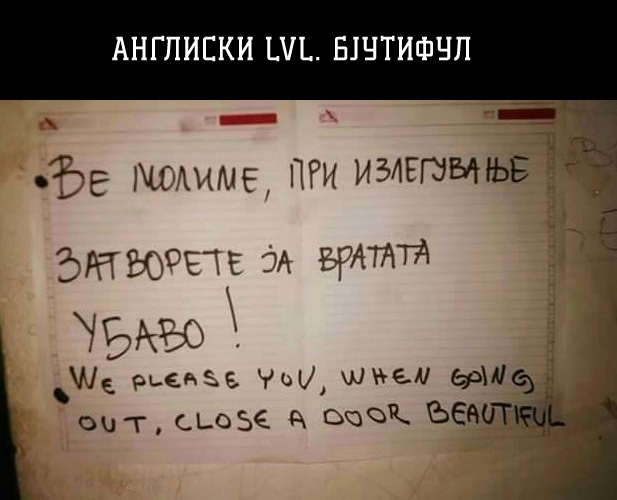 АНГЛИСКИ LVL. БЈУТИФУЛ
• ВЕ МОЛИМЕ, ПРИ ИЗЛЕГУВАЊЕ
ЗАТВОРЕТЕ ЈА ВРАТАТА
УБАВО!
• WE PLEASE YOU, WHEN GOING
OUT, CLOSE A DOOR BEAUTIFUL